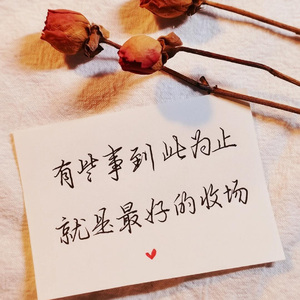 有些事到此为止
就是最好的收场